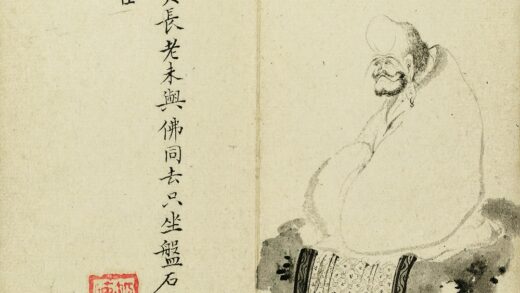 長老未與佛同去只坐盤石